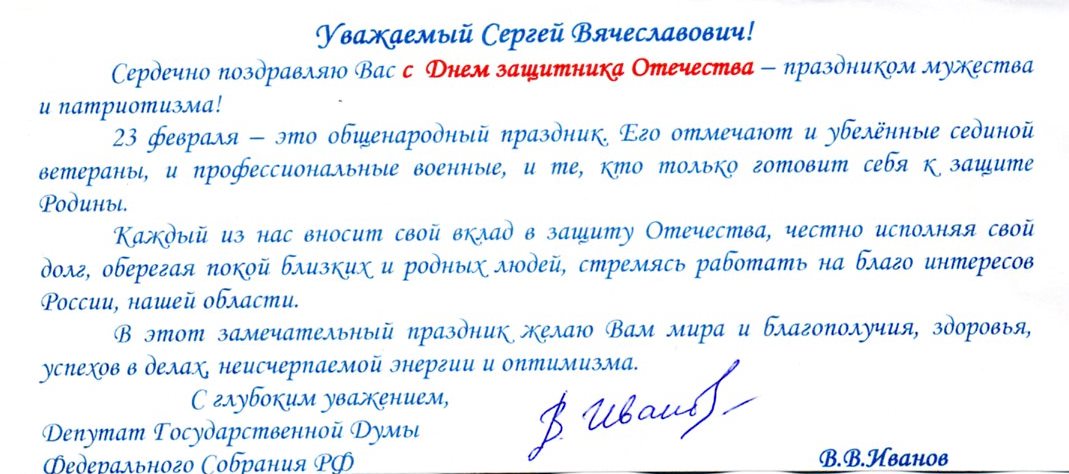 Уважаемый Сергей Вячеславович!
Сердечно поздравляю Вас с Днем защитника Отечества – праздником мужества
и патриотизма!
23 февраля – это общенародный праздник. Его отмечают и убелённые сединой
ветераны, и профессиональные военные, и те, кто только готовит себя к защите
Родины.
Каждый из нас вносит свой вклад в защиту Отечества, честно исполняя свой
долг, оберегая покой близких и родных людей, стремясь работать на благо интересов
России, нашей области.
В этот замечательный праздник желаю Вам мира и благополучия, здоровья,
успехов в делах, неисчерпаемой энергии и оптимизма.
С глубоким уважением,
Депутат Государственной Думы
Федерального Собрания РФ
В. Иванов
В.В.Иванов